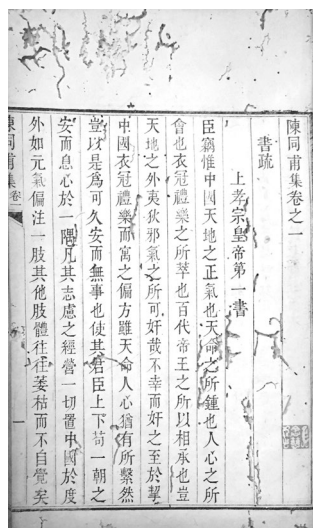 陳同甫集卷之一
書疏
上孝宗皇帝第一書
臣竊惟中國天地之正氣也天命之所鍾也人心之所
會也衣冠禮樂之所萃也百代帝王之所以相承也豈
天地之外夷狄邪氣之所可奸哉不幸而奸之至於挈
中國衣冠禮樂而寓之偏方雖天命人心猶有所繫然
豈以是爲可久安而無事也使其君臣上下苟一朝之
安而息心於一隅凡其志慮之經營一切置中國於度
外如元氣偏注一肢其他肢體往往萎枯而不自覺矣
陳同甫集 卷一 一